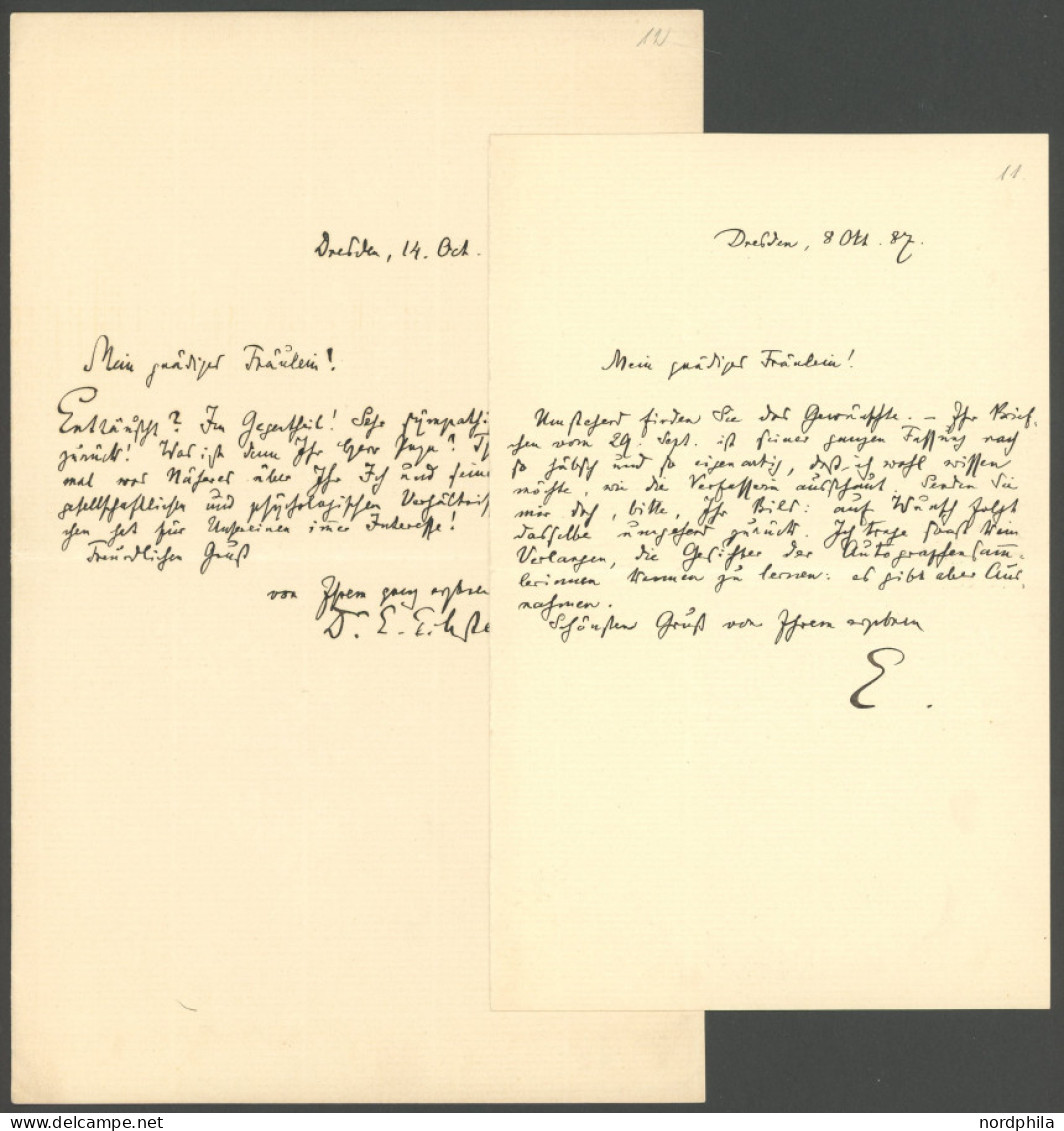 12
Dresden, 14. Oct.
Mein gnädiges Fräulein!
Enttäuscht? Im Gegentheil! Sehr sympathi
zurück! Was ist denn Ihr Herr Papa?
mal was Näheres über Ihr Ich und seine
gesellschaftlichen und psychologischen Verhältnis
chen hat für Unsereinen immer Interesse!
Freundlichen Gruß
von Ihrem ganz ergebnen
Dr. E. Eckste
11.
Dresden, 8 Okt. 87.
Mein gnädiges Fräulein!
Umstehend finden Sie das Gewünschte. – Ihr Brief-
chen vom 29. Sept. ist seiner ganzen Fassung nach
so hübsch und so eigenartig, daß ich wohl wissen
möchte, wie die Verfasserin ausschaut. Senden Sie
mir doch, bitte, Ihr Bild: auf Wunsch folgt
dasselbe umgehend zurück. Ich trage sonst kein
Verlangen, die Gesichter der Autographensamm-
lerinnen kennen zu lernen: es gibt aber Aus-
nahmen.
Schönsten Gruß von Ihrem ergebnen
E.
nordphila